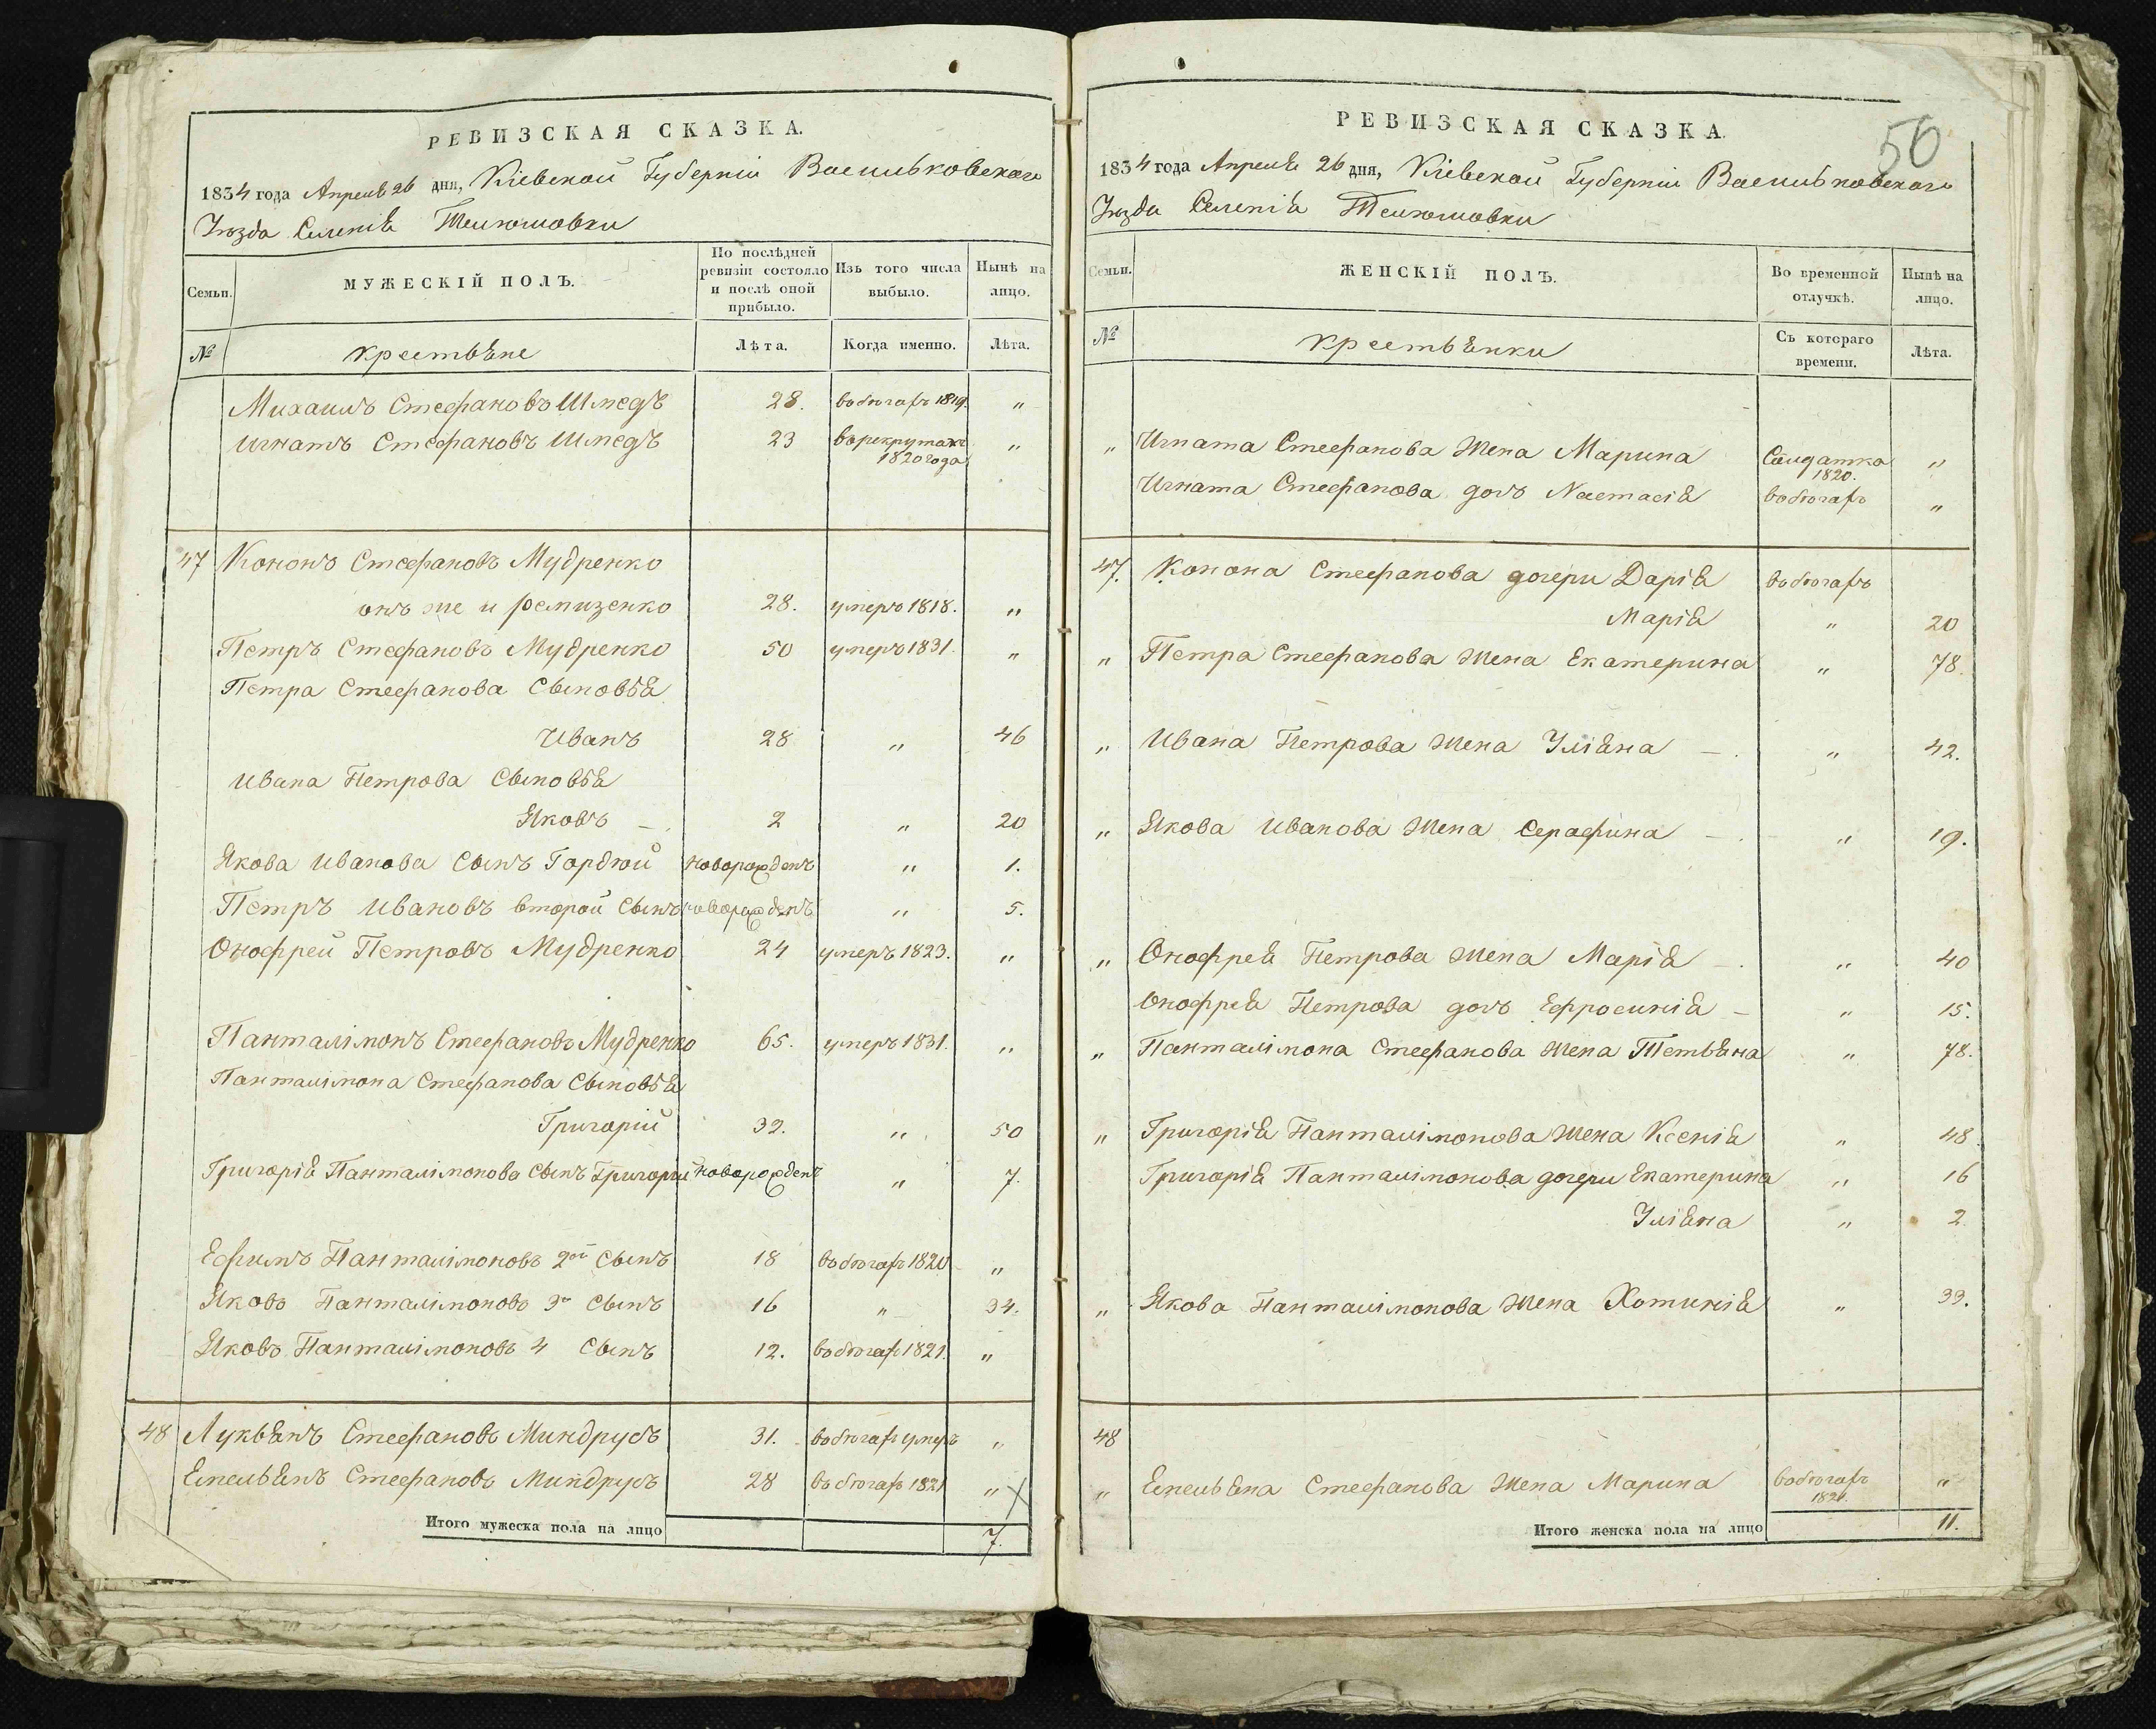 РЕВИЗСКАЯ СКАЗКА.
1834 года Апреля 26 дня, Кіевской Губерніи Васильковскаго
Уѣзда Селенія
Семьи.
МУЖЕСКІЙ ПОЛЪ.
По послѣдней ревизіи состояло и послѣ оной прибыло.
Изъ того числа выбыло.
Нынѣ на лицо.
№
крестьяне
Лѣта.
Когда именно.
Лѣта.
Михаилъ Стефановъ Шмедъ 28. въ бѣгах 1819. "
Игнатъ Стефановъ Шмедъ 23 въ рекрутах "
1820 года
47 Кононъ Стефановъ Мудренко
онъ же и Ремизенко 28. умеръ 1818. "
Петръ Стефановъ Мудренко 50 умеръ 1831. "
Петра Стефанова Сыновья
Иванъ 28 " 46
Ивана Петрова Сыновья
Яковъ – 2 " 20
Якова Иванова Сынъ Гордѣй новорожденъ " 1.
Петръ Ивановъ второй Сынъ новорожденъ " 5.
Онофрей Петровъ Мудренко 24 умеръ 1823. "
Панталімонъ Стефановъ Мудренко 65. умеръ 1831. "
Панталімона Стефанова Сыновья
Григорій 32. " 50
Григорія Панталімонова Сынъ Григорій новорожденъ " 7.
Ефимъ Панталімоновъ 2ой Сынъ 18 въ бѣгах 1820 "
Яковъ Панталімоновъ 3й Сынъ 16 " 34.
Яковъ Панталімоновъ 4 Сынъ 12. въ бѣгах 1821. "
48 Лукьянъ Стефановъ Миндрусъ 31. въ бѣгах умеръ "
Емельянъ Стефановъ Миндрусъ 28 въ бѣгах 1821 "
Итого мужеска пола на лицо 7.
56
РЕВИЗСКАЯ СКАЗКА.
1834 года Апреля 26 дня, Кіевской Губерніи Васильковскаго
Уѣзда Селенія
Семьи.
ЖЕНСКІЙ ПОЛЪ.
Во временной отлучкѣ.
Нынѣ на лицо.
№
крестьянки
Съ котораго времени.
Лѣта.
" Игната Стефанова Жена Марина Солдатка "
1820.
Игната Стефанова дочь Настасія въ бѣгах "
47. Конона Стефанова дочери Дарія въ бѣгах
Марія " 20
" Петра Стефанова Жена Екатерина " 78.
" Ивана Петрова Жена Уліяна – " 42.
" Якова Иванова Жена Серафина – " 19.
" Онофрея Петрова Жена Марія – " 40
Онофрея Петрова дочь Ефросинія – " 15.
" Панталімона Стефанова Жена Тетьяна " 78.
" Григорія Панталімонова Жена Ксенія " 48.
Григорія Панталімонова дочери Екатерина " 16
Уліяна " 2
" Якова Панталімонова Жена Хотинія " 33.
48
" Емельяна Стефанова Жена Марина въ бѣгах "
1821.
Итого женска пола на лицо 11.